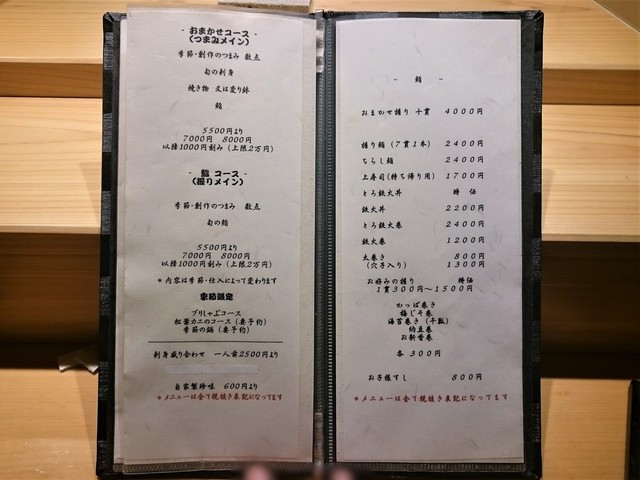 - おまかせコース -
(つまみメイン)
季節・創作のつまみ 数点
旬の刺身
焼き物 又は変り鉢
鮨
5500円より
7000円 8000円
以降1000円刻み(上限2万円)
- 鮨 コース -
(握りメイン)
季節・創作のつまみ 数点
旬の鮨
5500円より
7000円 8000円
以降1000円刻み(上限2万円)
*内容は季節・仕入によって変わります
季節限定
ブリしゃぶコース
松葉カニのコース(要予約)
季節の鍋(要予約)
刺身盛り合わせ 一人前2500円より
自家製珍味 600円より
*メニューは全て税抜き表記になってます
- 鮨 -
おまかせ握り 十貫 4000円
握り鮨(7貫1本) 2400円
ちらし鮨 2400円
上寿司(持ち帰り用) 1700円
とろ鉄火丼 時価
鉄火丼 2200円
とろ鉄火巻 2400円
鉄火巻 1200円
太巻き 800円
(穴子入り) 1300円
お好みの握り 時価
1貫300円~1500円
かっぱ巻き
梅じそ巻
海苔巻き(干瓢)
納豆巻
お新香巻
各 300円
お子様すし 800円
*メニューは全て税抜き表記になってます